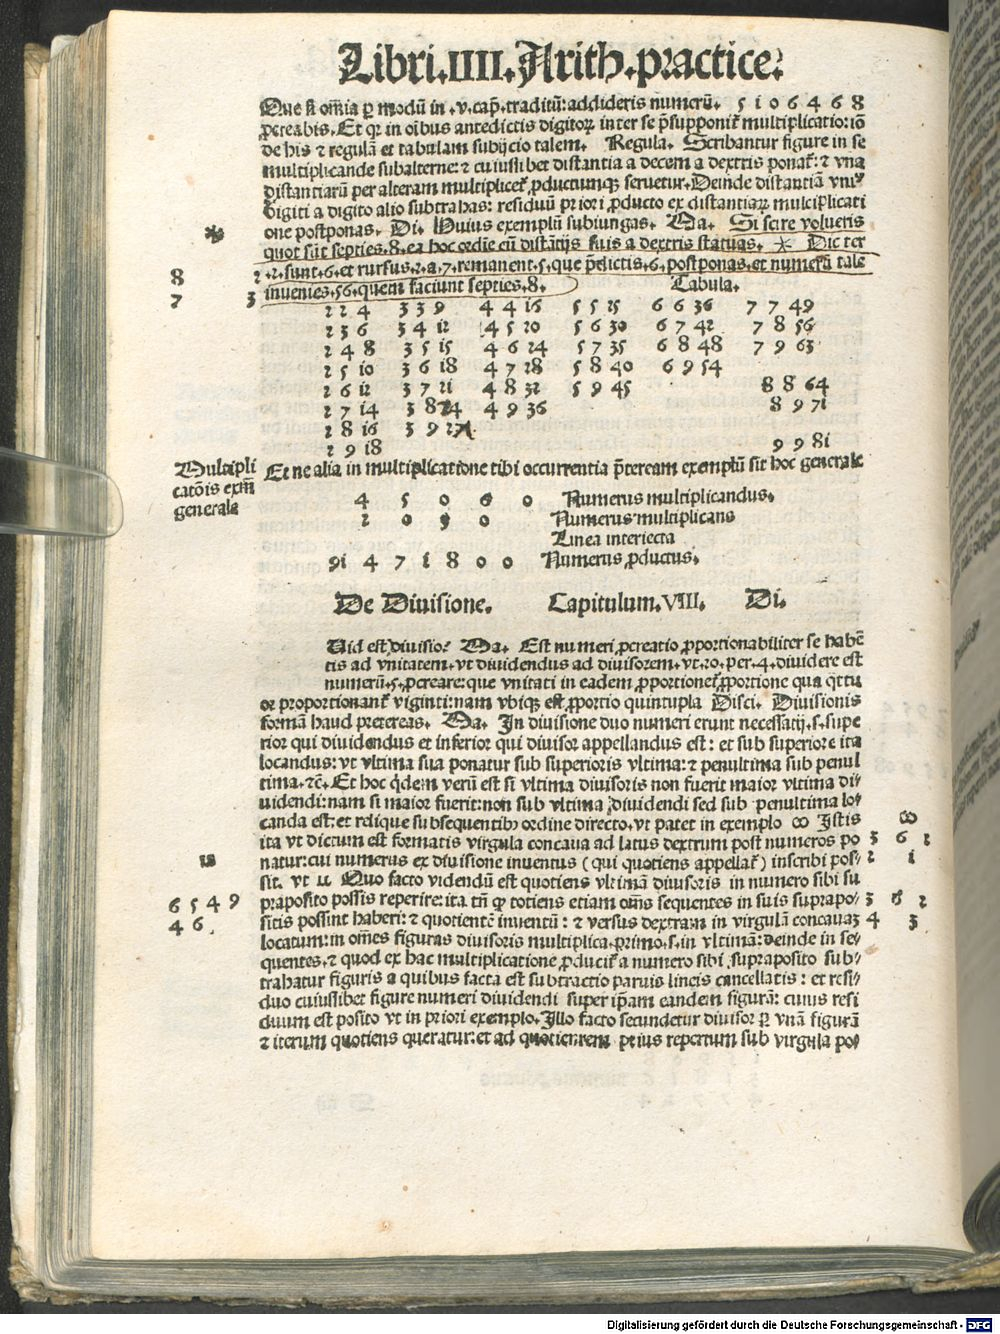 Libri.IIII.Arith.practice.
Que si om̄ia ꝑ modū in .v.cap̄.traditū:addideris numerū. 5 1 0 6 4 6 8
ꝓcreabis. Et qꝛ in oībus antedictis digitoꝝ inter se p̄supponit᷑ multiplicatio:iō
de his ⁊ regulā et tabulam subijcio talem. Regula. Scribantur figure in se
multiplicande subalterne:⁊ cuiuslibet distantia a decem a dextris ponat᷑:⁊ vna
distantiarū per alteram multiplicet᷑,ꝓductumqꝫ seruetur.Deinde distantiā vniꝰ
digiti a digito alio subtrahas: residuū priori ꝓducto ex distantiarꝝ multiplicati
one postponas. Di. Huius exemplū subiungas. Ma. Si scire volueris
quot sūt septies.8.ea hoc ordīe cū distātijs suis a dextris statuas. Dic ter
8 2
.2.sunt.6.et rursus.2.a.7.remanent.5.que p̄dictis.6.postponas.et numerū tale
7 3
inuenies.56.quem faciunt septies.8. Tabula.
2 2 4 3 3 9 4 4 16 5 5 25 6 6 36 7 7 49
2 3 6 3 4 12 4 5 20 5 6 30 6 7 42 7 8 56
2 4 8 3 5 15 4 6 24 5 7 35 6 8 48 7 9 63
2 5 10 3 6 18 4 7 28 5 8 40 6 9 54
2 6 12 3 7 21 4 8 32 5 9 45 8 8 64
2 7 14 3 8 24 4 9 36 8 9 71
2 8 16 3 9 27
2 9 18 9 9 81
Multipli
catōis exm̄
generale
Et ne alia in multiplicatione tibi occurrentia p̄teream exemplū sit hoc generale
4 5 0 6 0 Numerus multiplicandus.
2 0 3 0 Numerus multiplicans
Linea interiecta
91 4 7 1 8 0 0 Numerus ꝓductus.
De Diuisione. Capitulum.VIII. Di.
Uid est diuisio? Ma. Est numeri ꝓcreatio ꝓportionabiliter se habē
tis ad vnitatem.vt diuidendus ad diuisorem.vt.20.per.4.diuidere est
numerū.5.ꝓcreare:que vnitati in eadem ꝓportionet᷑ ꝓportione qua qttu
or proportionant᷑ viginti:nam vbiqꝫ est ꝓportio quintupla Disci. Diuisionis
formā haud pretereas. Ma. In diuisione duo numeri erunt necessarij.s.supe
rior qui diuidendus et inferior qui diuisor appellandus est: et sub superiore ita
locandus: vt vltima sua ponatur sub superioris vltima:⁊ penultima sub penul
tima.⁊c̄. Et hoc q̇dem verū est si vltima diuisoris non fuerit maior vltima di/
uidendi:nam si maior fuerit:non sub vltima diuidendi sed sub penultima lo/
canda est:et relique subsequentibꝰ ordine directo.vt patet in exemplo ꝏ Istis
ꝏ
ita vt dictum est formatis virgula concaua ad latus dextrum post numeros po
3 6 2
natur:cui numerus ex diuisione inuentus (qui quotiens appellat᷑) inscribi pos/
2 1
sit. vt Quo facto videndū est quotiens vltimā diuisoris in numero sibi su
6 5 4 9
praposito possis reperire:ita tn̄ ꝙ totiens etiam om̄s sequentes in suis suprapo/
3 6 2
4 6
sitis possint haberi:⁊ quotientē inuentū: ⁊ versus dextram in virgulā concauaꝫ
4 3
locatum:in om̄es figuras diuisoris multiplica.primo.s.in vltimā:deinde in se/
quentes.⁊ quod ex hac multiplicatione ꝓducit᷑ a numero sibi supraposito sub/
trahatur figuris a quibus facta est subtractio paruis lineis cancellatis: et resi/
duo cuiuslibet figure numeri diuidendi super ip̄am eandem figurā: cuius resi
duum est posito vt in priori exemplo.Illo facto secundetur diuisor ꝑ vnā figurā
⁊ iterum quotiens queratur:et ad quotientem prius repertum sub virgula po/
Digitalisierung gefördert durch die Deutsche Forschungsgemeinschaft - DFG